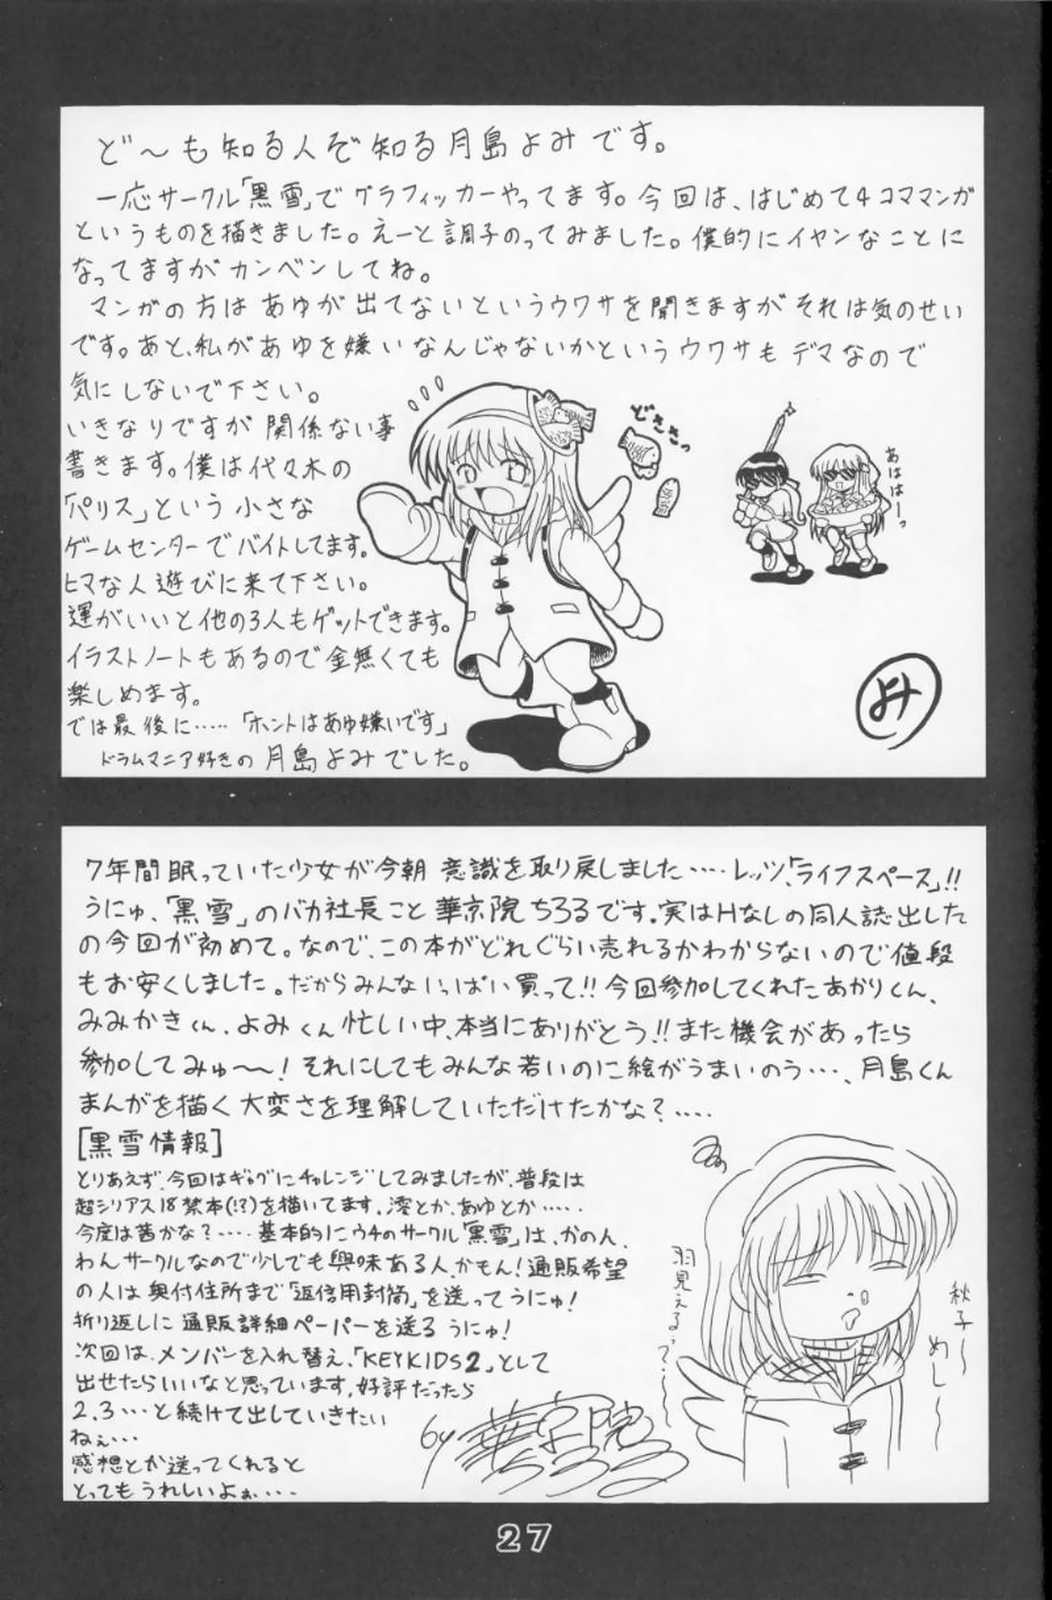 ど〜も知る人ぞ知る月島よみです。
一応サークル「黒雪」でグラフィッカーやってます。今回は、はじめて4コママンガ
というものを描きました。えーと調子のってみました。僕的にイヤンなことに
なってますがカンベンしてね。
マンガの方はあゆが出てないというウワサを聞きますがそれは気のせい
です。あと、私があゆを嫌いなんじゃないかというウワサもデマなので
気にしないで下さい。
いきなりですが関係ない事
書きます。僕は代々木の
「パリス」という小さな
ゲームセンターでバイトしてます。
ヒマな人遊びに来て下さい。
運がいいと他の3人もゲットできます。
イラストノートもあるので金無くても
楽しめます。
では最後に‥‥‥「ホントはあゆ嫌いです」
ドラムマニア好きの月島よみでした。
どささっ
あははーっ
よみ
7年間眠っていた少女が今朝意識を取り戻しました‥‥レッツ、「ライフスペース」!!
うにゅ、「黒雪」のバカ社長こと華京院ちろるです。実はHなしの同人誌出した
の今回が初めて。なので、この本がどれぐらい売れるかわからないので値段
もお安くしました。だからみんないっぱい買って!!今回参加してくれたあかりくん、
みみかきくん、よみくん忙しい中、本当にありがとう!!また機会があったら
参加してみゅ〜〜!それにしてもみんな若いのに絵がうまいのう‥‥、月島くん
まんがを描く大変さを理解していただけたかな?‥‥
[黒雪情報]
とりあえず、今回はギャグにチャレンジしてみましたが、普段は
超シリアス18禁本(!?)を描いてます、澪とか、あゆとか‥‥‥
今度は茜かな?‥‥基本的にウチのサークル「黒雪」は、かのん、
わんサークルなので少しでも興味ある人、かもん!通販希望
の人は奥付住所まで「返信用封筒」を送ってうにゅ!
折り返しに通販詳細ペーパーを送るうにゅ!
次回は、メンバーを入れ替え、「KEYKIDS2」として
出せたらいいなと思っています、好評だったら
2、3‥‥と続けて出していきたい
ねぇ‥‥
感想とか送ってくれると
とってもうれしいよぉ‥‥
by 華京院ちろる
羽見えるって‥‥〜
秋子〜
めし〜
27